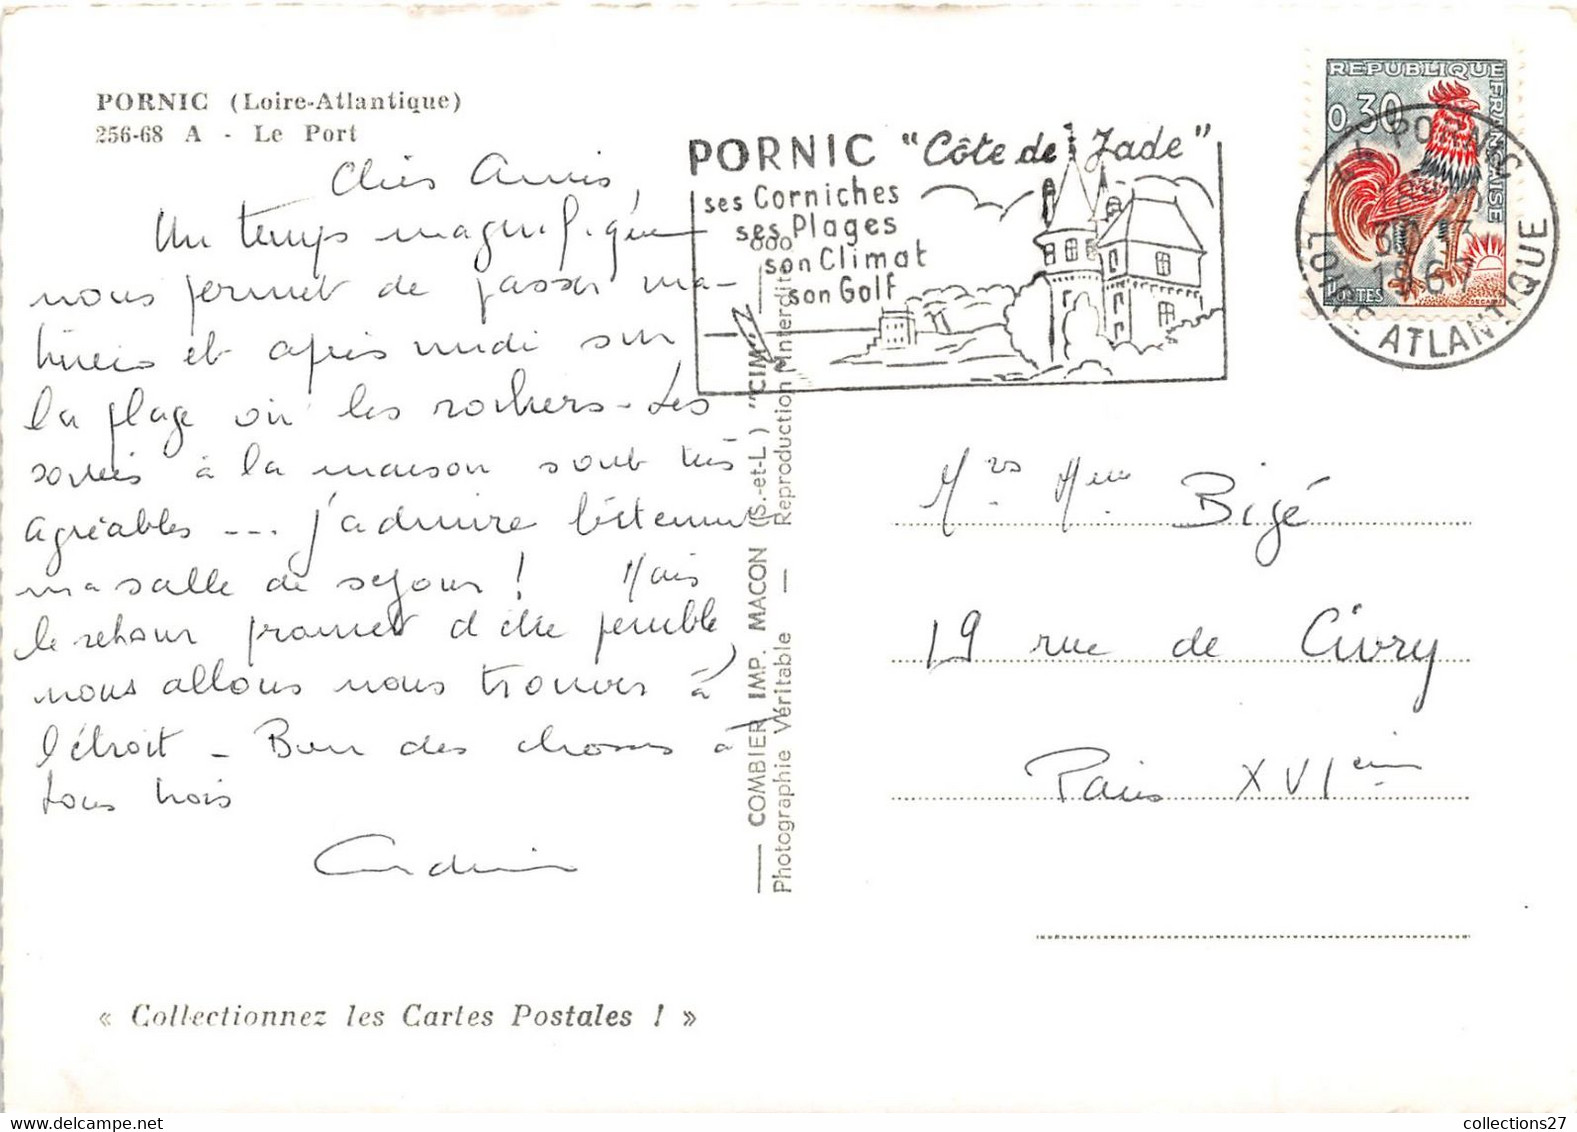 PORNIC (Loire-Atlantique)
256-68 A - Le Port
Chers Amis,
Un temps magnifique
nous permet de passer ma-
tinées et après midi sur
la plage ou les rochers - Les
soirées à la maison sont très
agréables --- j'admire
ma salle de séjour ! Mais
le retour promet d'être pénible,
nous allons nous trouver à
l'étroit - Bien des choses à
tous trois
PORNIC "Côte de Jade"
ses Corniches
ses Plages
son Climat
son Golf
REPUBLIQUE FRANÇAISE
0,30
POSTES
PORNIC
LOIRE ATLANTIQUE
COMBIER IMP. MACON (S.-et-L.) "CIM"
Photographie Véritable — Reproduction Interdite
Bigé
19 rue de Civry
Paris XVIème
« Collectionnez les Cartes Postales ! »
collections27